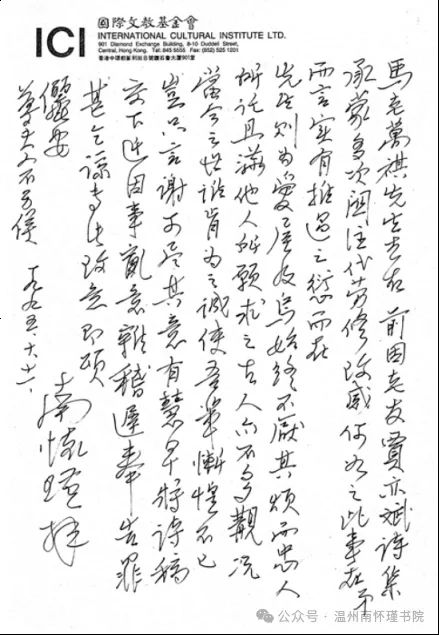 ICI
國際文教基金會
INTERNATIONAL CULTURAL INSTITUTE LTD.
901 Diamond Exchange Building, 8-10 Duddell Street,
Central, Hong Kong. Tel: 845 5555 Fax: (852) 525 1201
香港中環都爹利街8號鑽石會大廈901室
馬老萬祺先生吉右 前因老友賈亦斌詩集
承蒙多次關注代勞修改感何如之此事在弟
而言實有推過之愆而在
先生則為愛屋及烏始終不厭其煩而忠人
所託且滿他人所願求之古人亦不多覯況
當今之世誰肯為之誠使吾輩慚惶不已
豈只言謝可盡其意有慧早將詩稿
交下近因事亂意雜稽遲奉告罪
甚乞諒專此致意即頌
儷安
尊夫人不另候 一九九五、六、十一
南懷瑾拜
公众号 · 温州南怀瑾书院